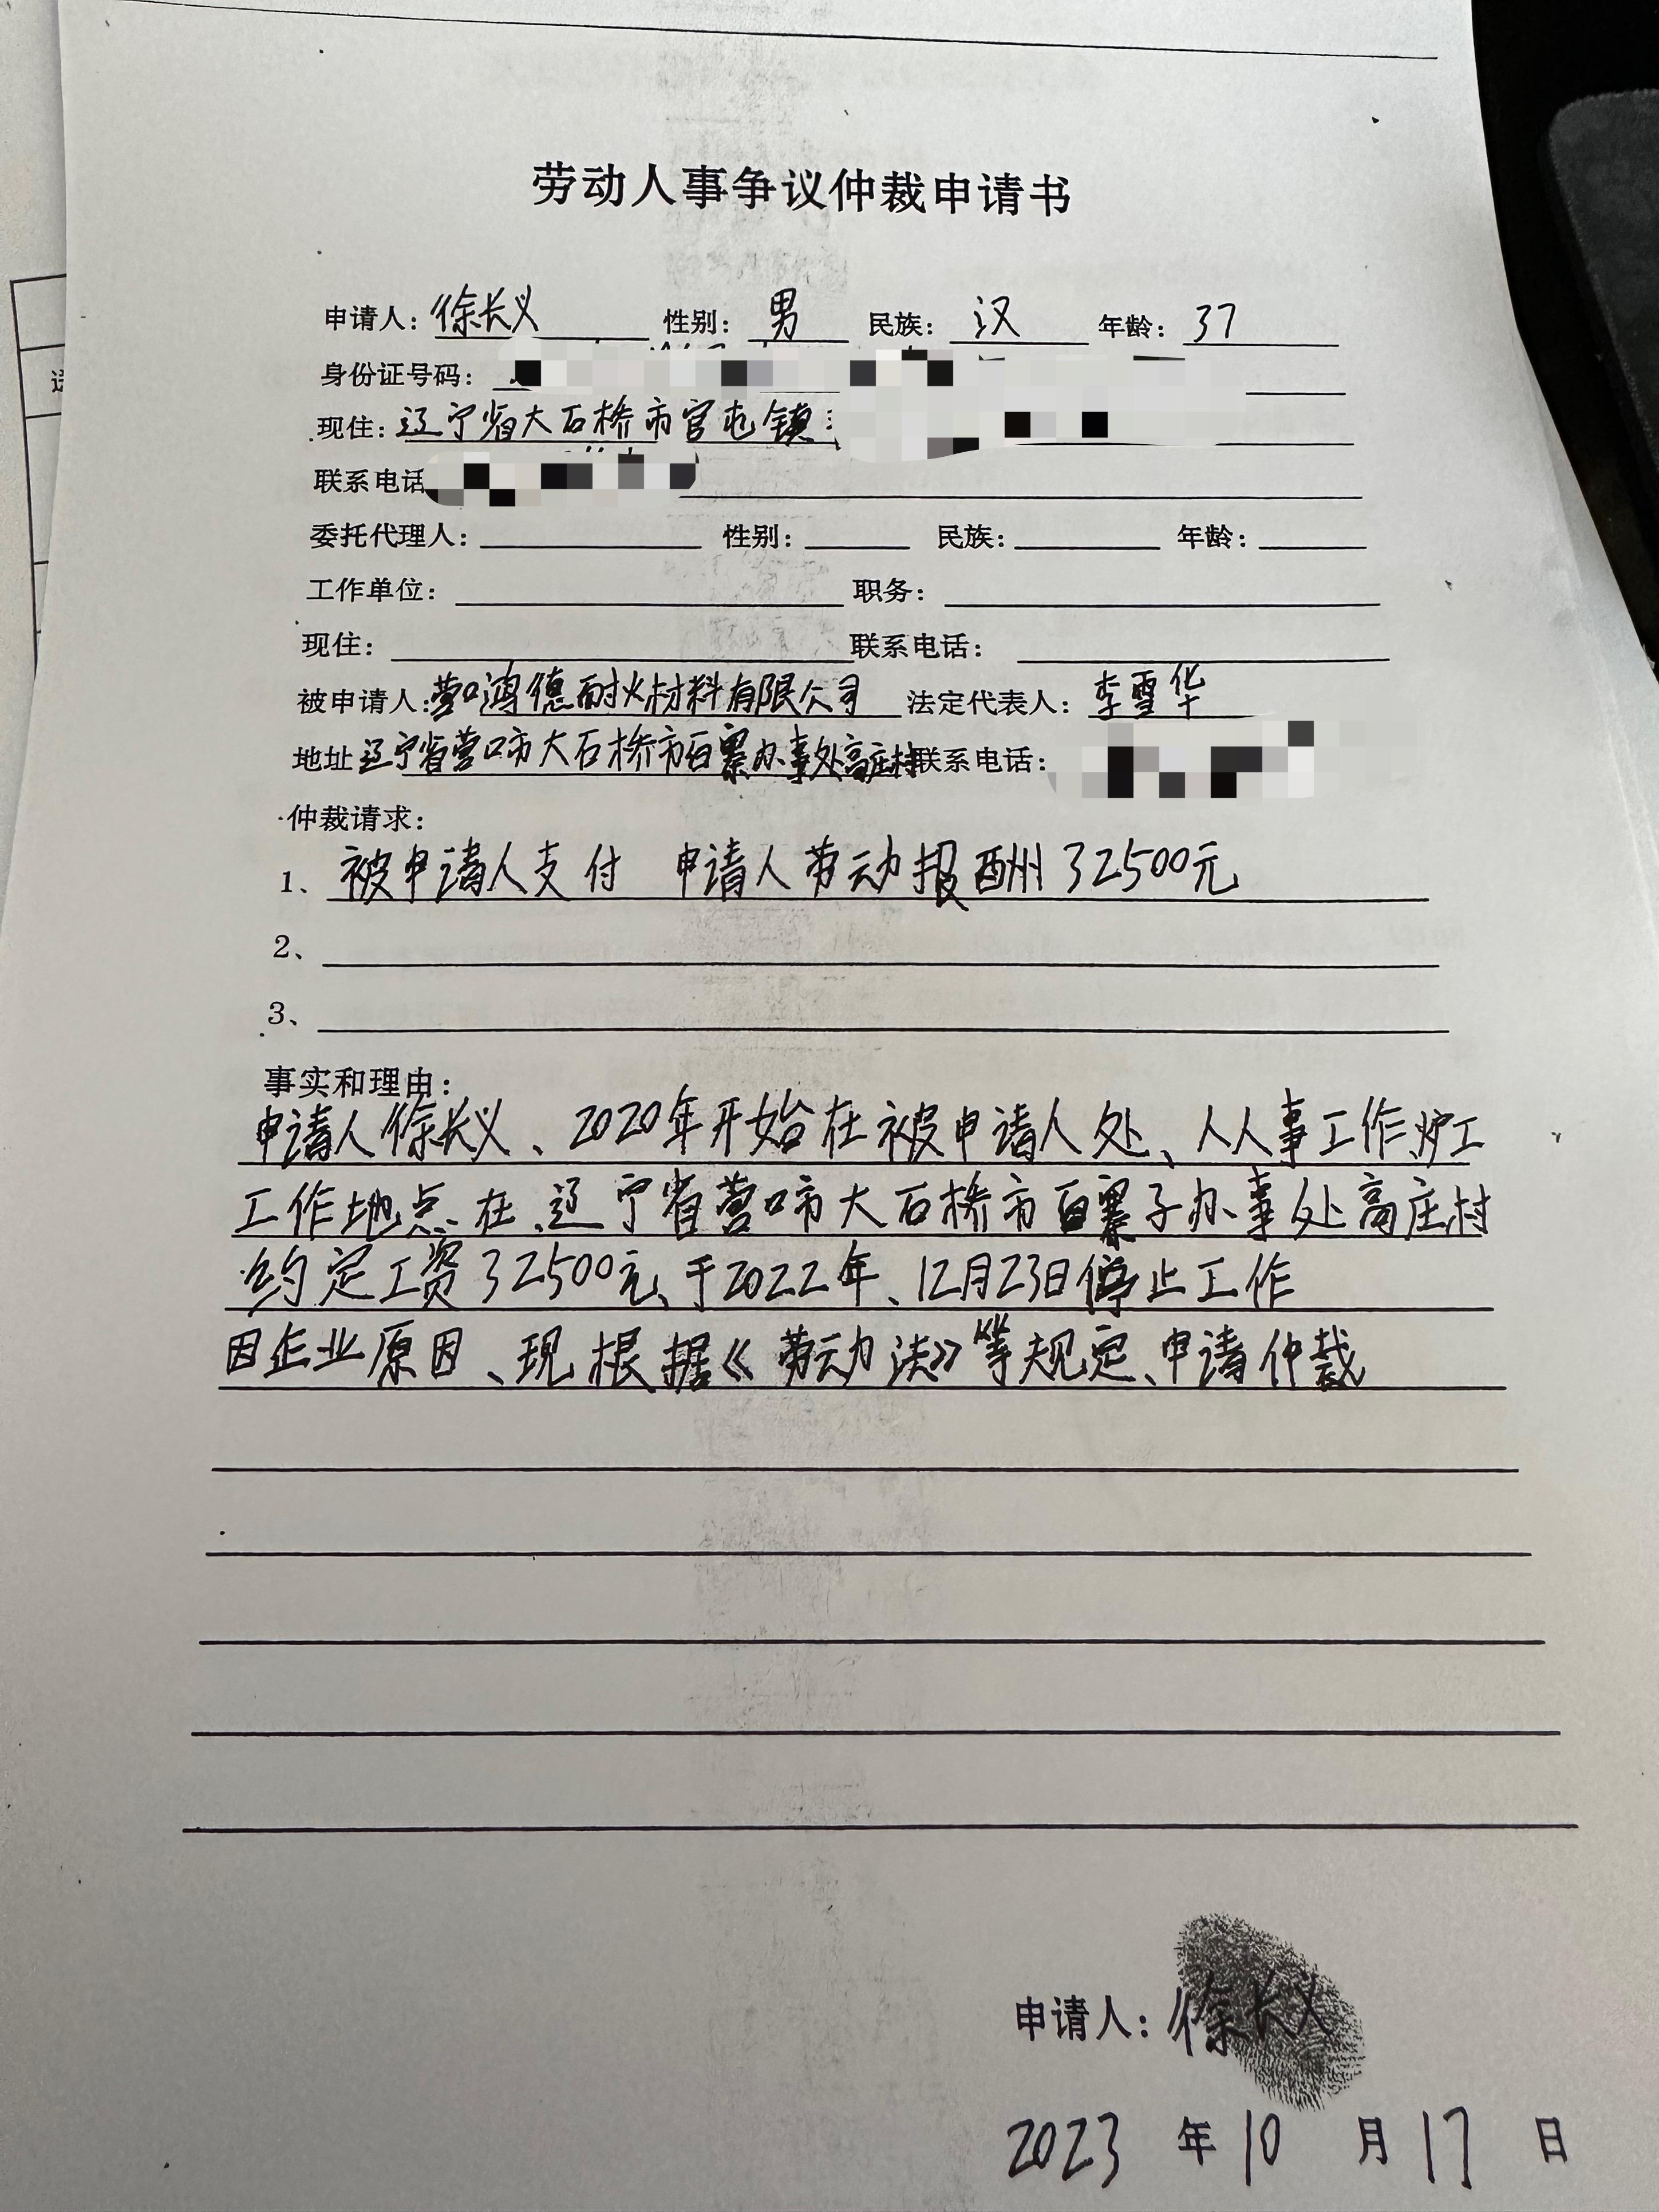 劳动人事争议仲裁申请书
申请人：徐长义 性别：男 民族：汉 年龄：37
身份证号码：
现住：辽宁省大石桥市官屯镇
联系电话
委托代理人： 性别： 民族： 年龄：
工作单位： 职务：
现住： 联系电话：
被申请人：营口鸿德耐火材料有限公司 法定代表人：李雪华
地址 辽宁省营口市大石桥市百寨办事处高庄村联系电话：
仲裁请求：
1、被申请人支付 申请人劳动报酬32500元
2、
3、
事实和理由：
申请人徐长义、2020年开始在被申请人处、人人事工作炉工
工作地点在辽宁省营口市大石桥市百寨子办事处高庄村
约定工资32500元、于2022年、12月23日停止工作
因企业原因、现根据《劳动法》等规定、申请仲裁
申请人：徐长义
2023 年 10 月 17 日